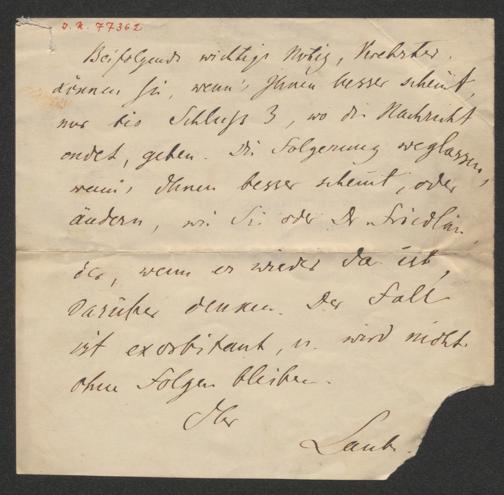 I.N. 77362
Beifolgende wichtige Notiz, Verehrter,
können Sie, wenn's Ihnen besser scheint,
nur bis Schluß 3, wo die Nachricht
endet, geben. Die Folgerung weglassen,
wenn's Ihnen besser scheint, oder
ändern, wie Sie oder Dr. Friedlän
der, wenn er wieder da ist,
darüber denken. Der Fall
ist exorbitant, u. wird nicht
ohne Folgen bleiben.
Ihr
Laube